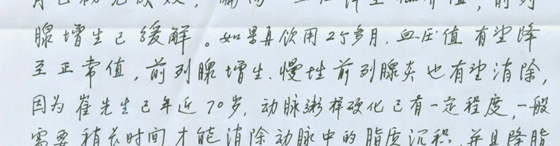 腺增生已缓解。如果再饮用2个多月,血压值有望降
至正常值,前列腺增生、慢性前列腺炎也有望消除,
因为崔先生已年近70岁,动脉粥样硬化已有一定程度,一般
需要稍长时间才能消除动脉中的脂质沉积,并且降脂